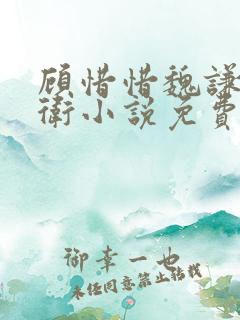 顾惜惜魏謙
衛小說免費
御幸一也
未经同意禁止转载